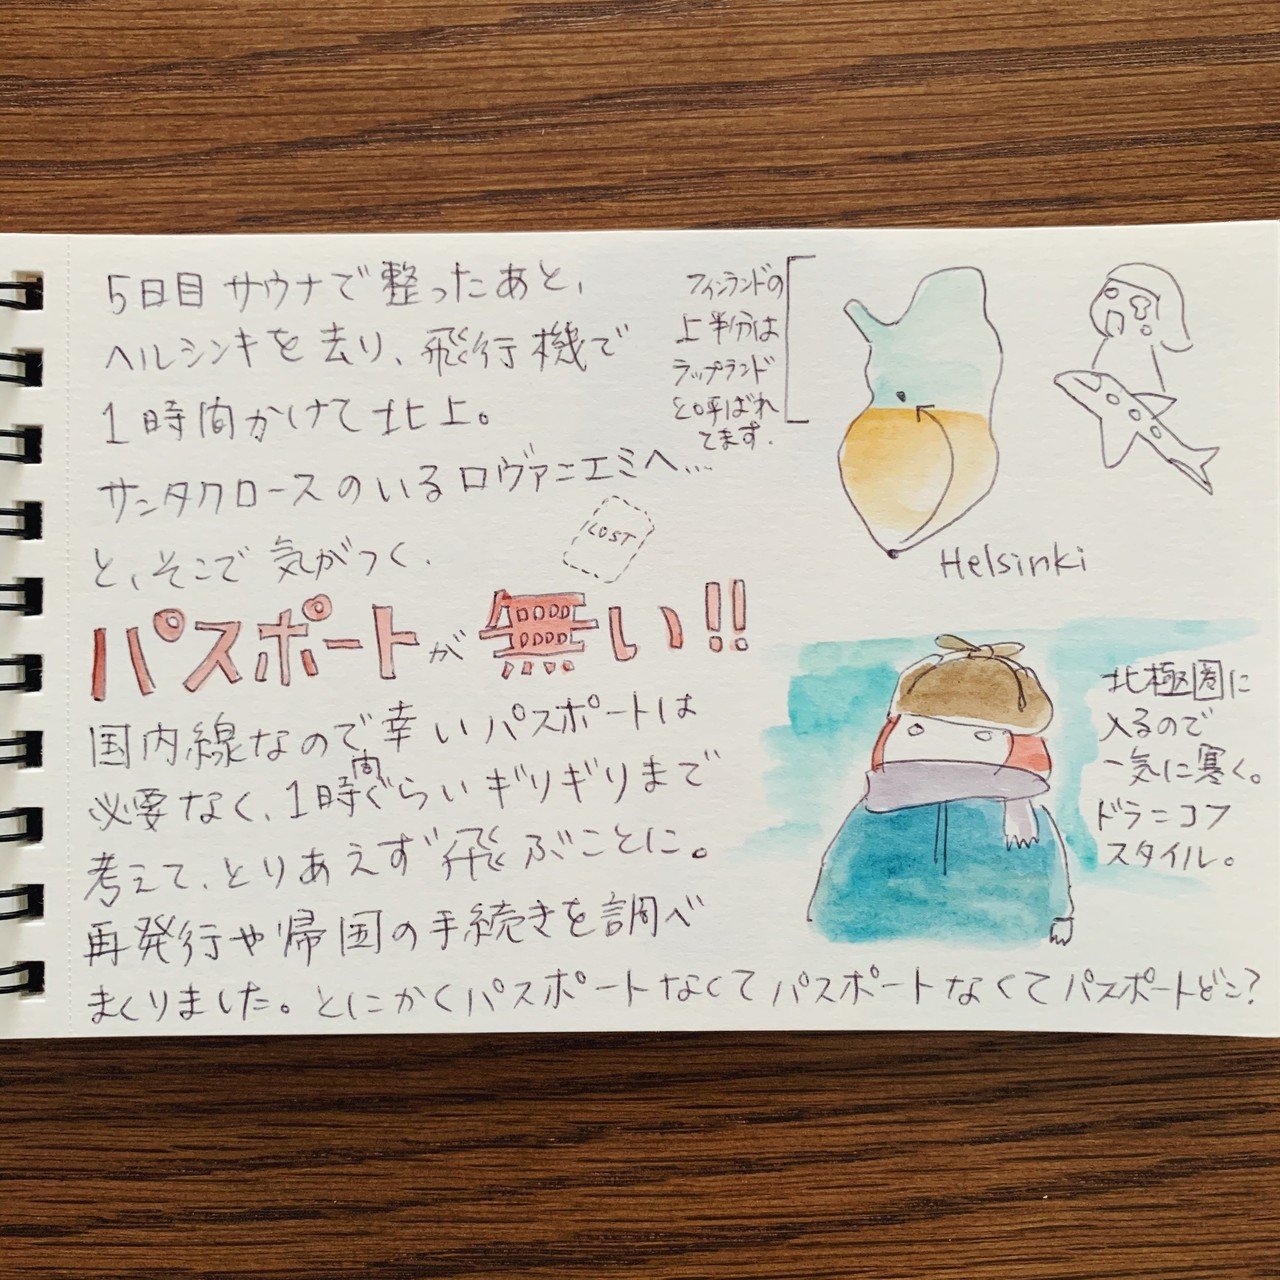 5日目 サウナで整ったあと、
ヘルシンキを去り、飛行機で
1時間かけて北上。
サンタクロースのいるロヴァニエミへ…
と、そこで気がつく、
LOST
パスポートが無い!!
国内線なので幸いパスポートは
必要なく、1時間ぐらいギリギリまで
考えて、とりあえず飛ぶことに。
再発行や帰国の手続きを調べ
まくりました。とにかくパスポートなくてパスポートなくてパスポートどこ?
フィンランドの
上半分は
ラップランド
と呼ばれ
てます.
Helsinki
北極圏に
入るので
一気に寒く。
ドラニコフ
スタイル。